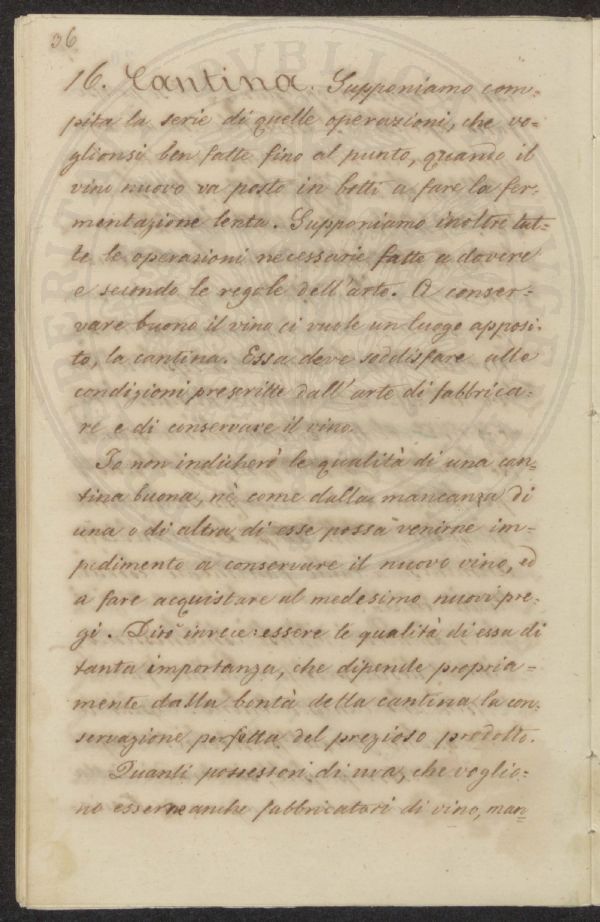 36
16. Cantina. Supponiamo com=
pita la serie di quelle operazioni, che vo=
glionsi ben fatte fino al punto, quando il
vino nuovo va posto in botti a fare la fer=
mentazione lenta. Supponiamo inoltre tut=
te le operazioni necessarie fatte a dovere
e secondo le regole dell'arte. A conser=
vare buono il vino ci vuole un luogo apposi=
to, la cantina. Essa deve soddisfare alle
condizioni prescritte dall'arte di fabbrica=
re e di conservare il vino.
Io non indicherò le qualità di una can=
tina buona, nè come dalla mancanza di
una o di altra di esse possa venirne im=
pedimento a conservare il nuovo vino, ed
a fare acquistare al medesimo nuovi pre=
gi. Dirò invece: essere le qualità di essa di
tanta importanza, che dipende propria=
mente dalla bontà della cantina la con=
servazione perfetta del prezioso prodotto.
Quanti possessori di uva, che voglio=
no esserne anche fabbricatori di vino, man=